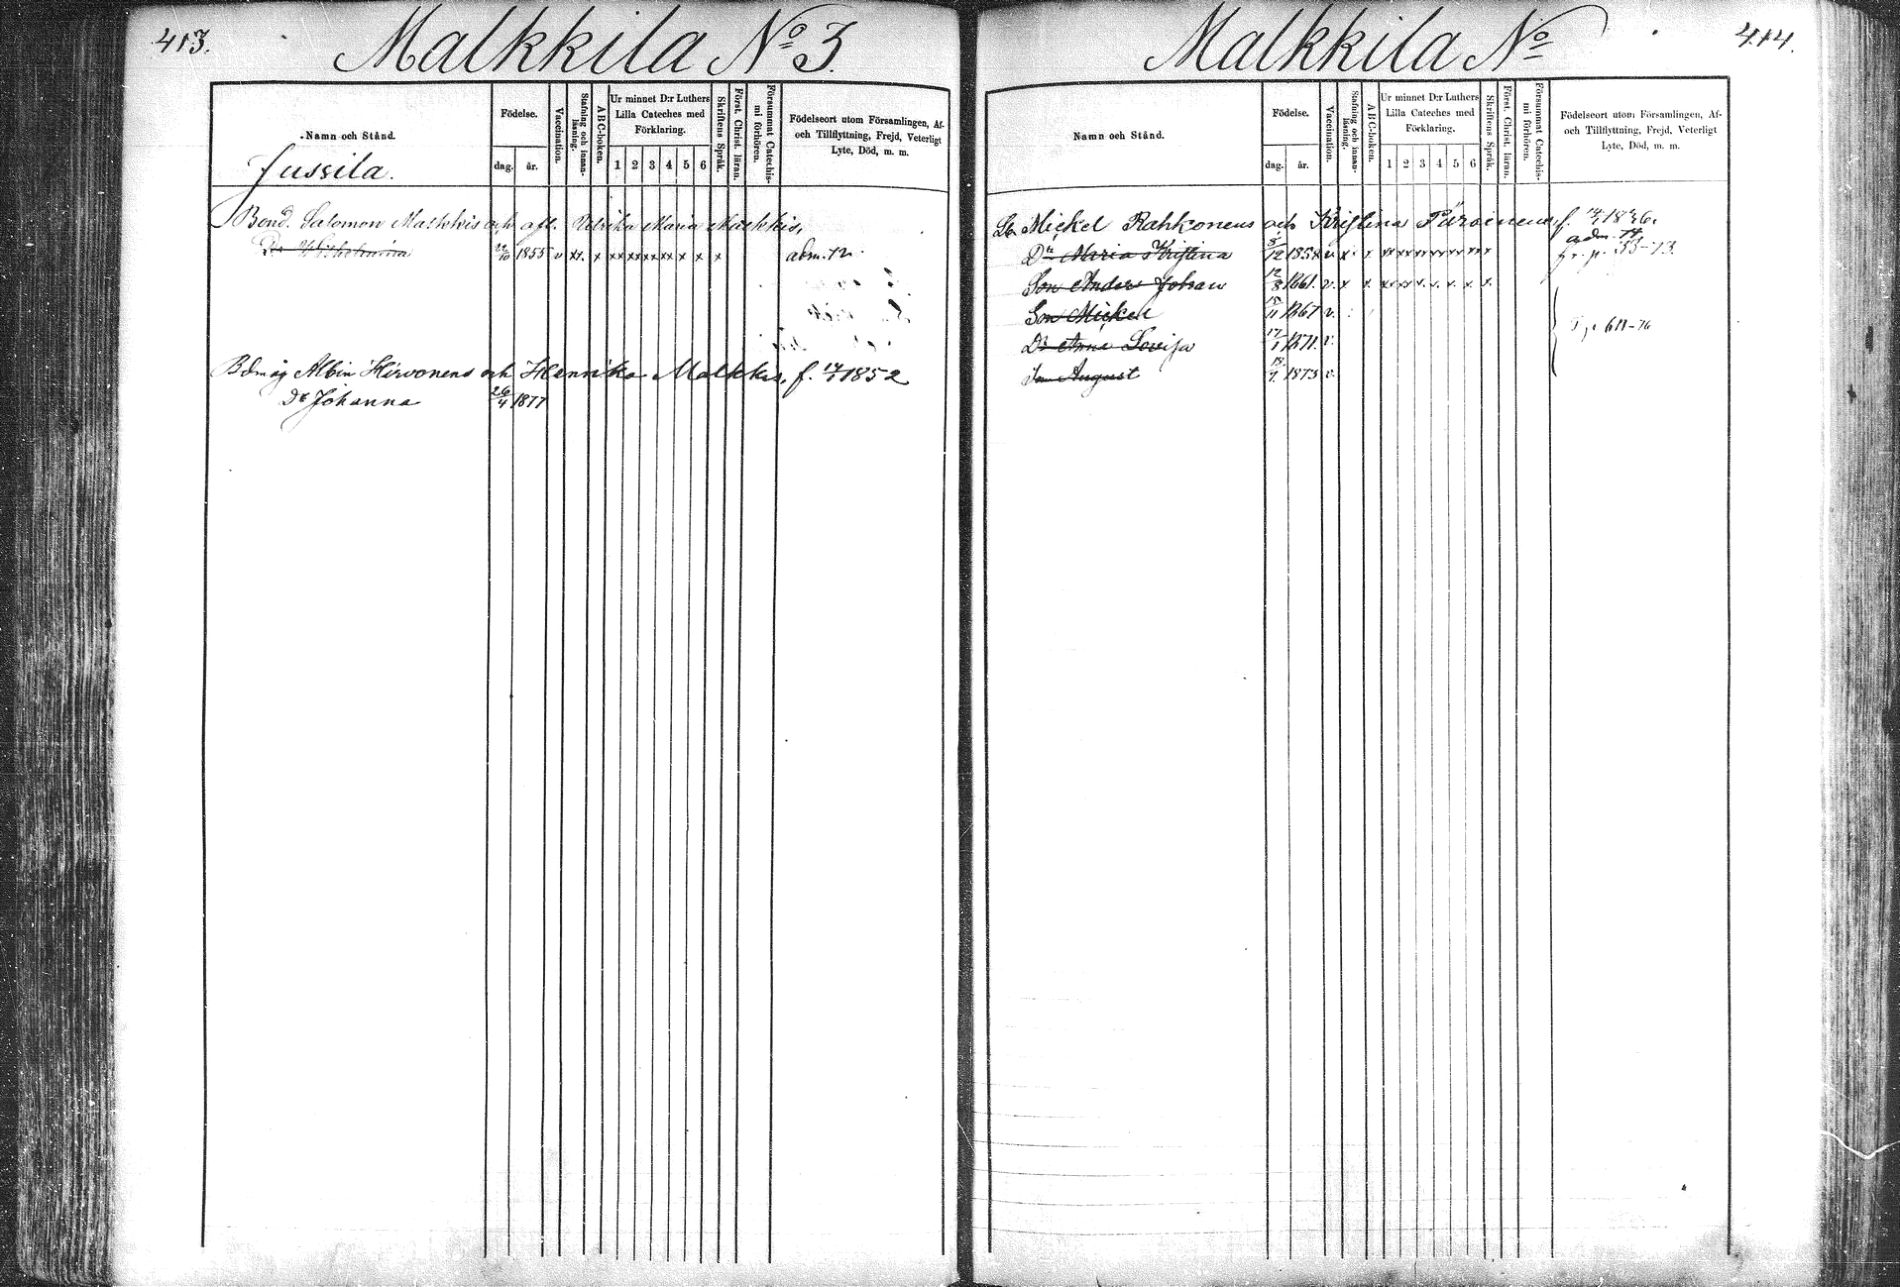 413.
Malkkila No 3.
Namn och Stånd.
Födelse.
dag.
år.
Vaccination.
Stafning och innan-läsning.
ABC-boken.
Ur minnet D:r Luthers
Lilla Cateches med
Förklaring.
1 2 3 4 5 6
Skriftens Språk.
Först. Christ. läran.
Försummat Catechis-mi förhören.
Födelseort utom Församlingen, Af-
och Tillflyttning, Frejd, Veterligt
Lyte, Död, m. m.
Jussila.
Bond. Salomon Malkkis och afl. Ulrika Maria Malkkis,
Dr Wilhelmina 1855 v xx. x xx xx xx x x x x adm. 72.
Bdmåg Albin Hirvonens och Henrika Malkkis, f. 1852
Dr Johanna 26/4 1877
414.
Malkkila No
Namn och Stånd.
Födelse.
dag.
år.
Vaccination.
Stafning och innan-läsning.
ABC-boken.
Ur minnet D:r Luthers
Lilla Cateches med
Förklaring.
1 2 3 4 5 6
Skriftens Språk.
Först. Christ. läran.
Försummat Catechis-mi förhören.
Födelseort utom Församlingen, Af-
och Tillflyttning, Frejd, Veterligt
Lyte, Död, m. m.
Mickel Rahkonens och Kristina Parvinens, f. 1836.
adm. 74.
Dr Maria Kristina 5/12 1858 v. x x xx xx xx xx xx xx x fr. p. 53-73.
Son Anders Johan 12/8 1861. v. x x xx xx x. x. x. x x.
Son Mickel 15/11 1867 v.
Dr Anna Lovisa 17/1 1871. v. 611-76
Son August 1873 v.